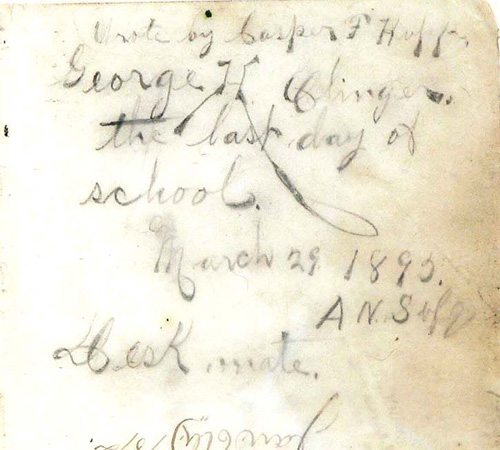 Wrote by Casper F Hopp,
George H. Clinger.
the last day of
school.
March 29 1895.
A N S
Desk mate.